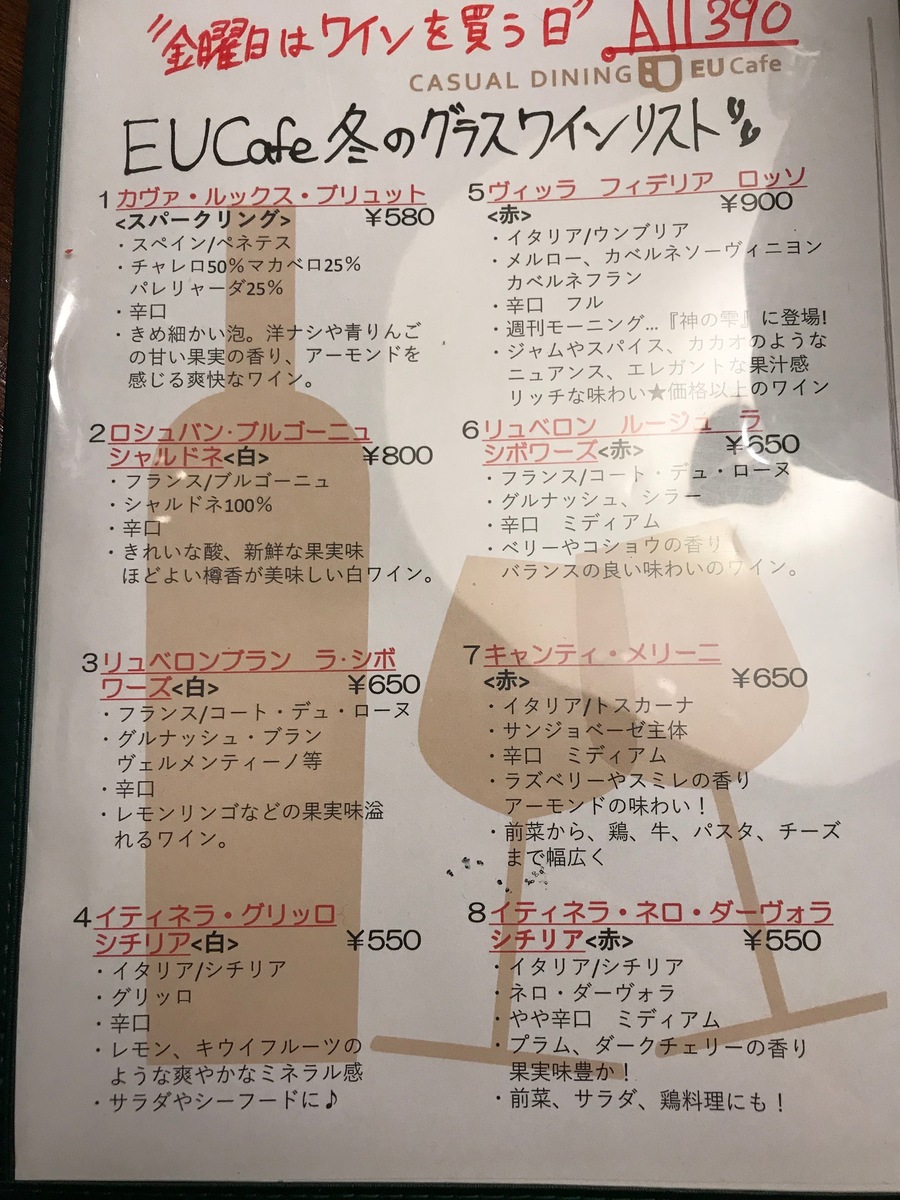 "金曜日はワインを買う日" All 390
CASUAL DINING EU Cafe
EUCafe 冬のグラスワインリスト
1 カヴァ・ルックス・ブリュット
<スパークリング> ¥580
・スペイン/ペネテス
・チャレロ50%マカベロ25%
パレリャーダ25%
・辛口
・きめ細かい泡。洋ナシや青りんご
の甘い果実の香り、アーモンドを
感じる爽快なワイン。
2 ロシュバン・ブルゴーニュ
シャルドネ<白> ¥800
・フランス/ブルゴーニュ
・シャルドネ100%
・辛口
・きれいな酸、新鮮な果実味
ほどよい樽香が美味しい白ワイン。
3 リュベロンブラン ラ・シボ
ワーズ<白> ¥650
・フランス/コート・デュ・ローヌ
・グルナッシュ・ブラン
ヴェルメンティーノ等
・辛口
・レモンリンゴなどの果実味溢
れるワイン。
4 イティネラ・グリッロ
シチリア<白> ¥550
・イタリア/シチリア
・グリッロ
・辛口
・レモン、キウイフルーツの
ような爽やかなミネラル感
・サラダやシーフードに♪
5 ヴィッラ フィデリア ロッソ
<赤> ¥900
・イタリア/ウンブリア
・メルロー、カベルネソーヴィニヨン
カベルネフラン
・辛口 フル
・週刊モーニング…『神の雫』に登場!
・ジャムやスパイス、カカオのような
ニュアンス、エレガントな果汁感
リッチな味わい★価格以上のワイン
6 リュベロン ルージュ ラ
シボワーズ<赤> ¥650
・フランス/コート・デュ・ローヌ
・グルナッシュ、シラー
・辛口 ミディアム
・ベリーやコショウの香り
バランスの良い味わいのワイン。
7 キャンティ・メリーニ
<赤> ¥650
・イタリア/トスカーナ
・サンジョベーゼ主体
・辛口 ミディアム
・ラズベリーやスミレの香り
アーモンドの味わい！
・前菜から、鶏、牛、パスタ、チーズ
まで幅広く
8 イティネラ・ネロ・ダーヴォラ
シチリア<赤> ¥550
・イタリア/シチリア
・ネロ・ダーヴォラ
・やや辛口 ミディアム
・プラム、ダークチェリーの香り
果実味豊か！
・前菜、サラダ、鶏料理にも！